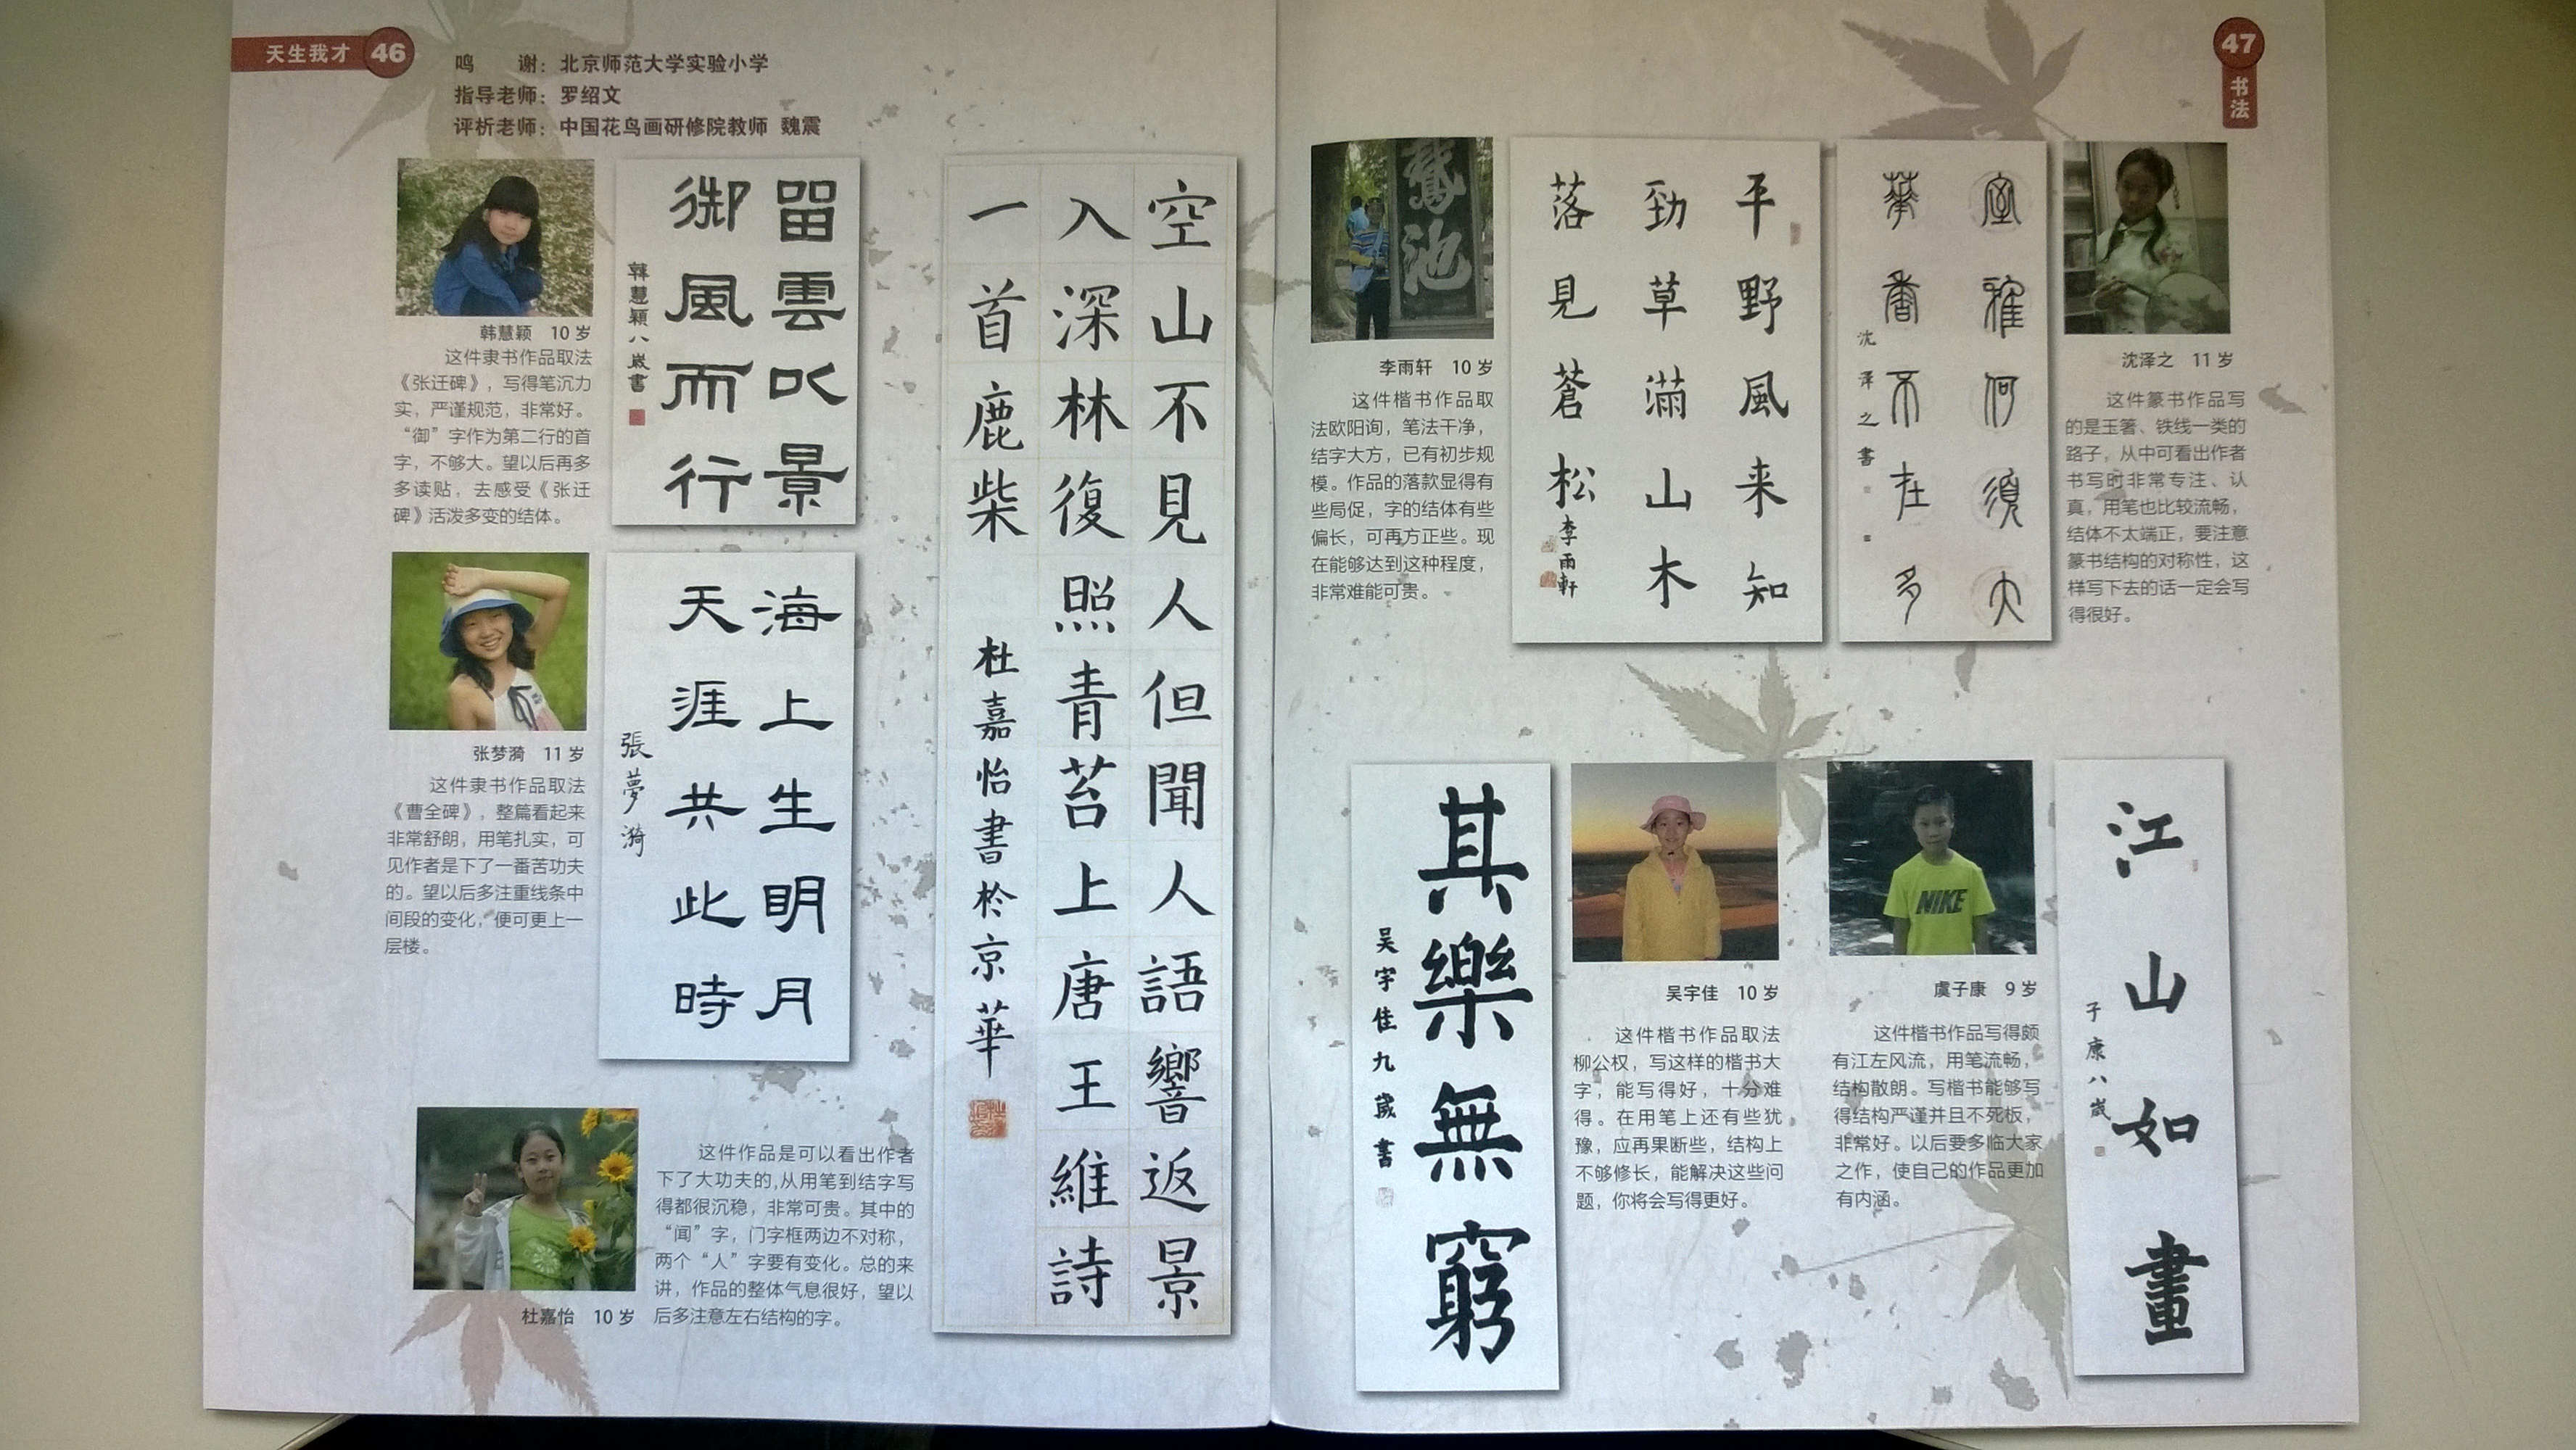 天生我才 46
鸣　　谢：北京师范大学实验小学
指导老师：罗绍文
评析老师：中国花鸟画研修院教师 魏震
韩慧颖 10 岁
这件隶书作品取法
《张迁碑》，写得笔沉力
实，严谨规范，非常好。
“御”字作为第二行的首
字，不够大。望以后再多
多读贴，去感受《张迁
碑》活泼多变的结体。
留雲吹景
御風而行
韓慧穎八歲書
张梦漪 11 岁
这件隶书作品取法
《曹全碑》，整篇看起来
非常舒朗，用笔扎实，可
见作者是下了一番苦功夫
的。望以后多注重线条中
间段的变化，便可更上一
层楼。
海上生明月
天涯共此時
張夢漪
杜嘉怡 10 岁
这件作品是可以看出作者
下了大功夫的,从用笔到结字写
得都很沉稳，非常可贵。其中的
“闻”字，门字框两边不对称，
两个“人”字要有变化。总的来
讲，作品的整体气息很好，望以
后多注意左右结构的字。
空山不見人但聞人語響返景
入深林復照青苔上唐王維詩
一首鹿柴
杜嘉怡書於京華
47
书法
李雨轩 10 岁
这件楷书作品取
法欧阳询，笔法干净，
结字大方，已有初步规
模。作品的落款显得有
些局促，字的结体有些
偏长，可再方正些。现
在能够达到这种程度，
非常难能可贵。
鵞池
平野風来知
勁草滿山木
落見蒼松
李雨軒
室雅何須大
華香不在多
沈泽之書
沈泽之 11 岁
这件篆书作品写
的是玉箸、铁线一类的
路子，从中可看出作者
书写时非常专注、认
真，用笔也比较流畅，
结体不太端正，要注意
篆书结构的对称性，这
样写下去的话一定会写
得很好。
其樂無窮
吴宇佳九歲書
吴宇佳 10 岁
这件楷书作品取法
柳公权，写这样的楷书大
字，能写得好，十分难
得。在用笔上还有些犹
豫，应再果断些，结构上
不够修长，能解决这些问
题，你将会写得更好。
NIKE
虞子康 9 岁
这件楷书作品写得颇
有江左风流，用笔流畅，
结构散朗。写楷书能够写
得结构严谨并且不死板，
非常好。以后要多临大家
之作，使自己的作品更加
有内涵。
江山如畫
子康八歲